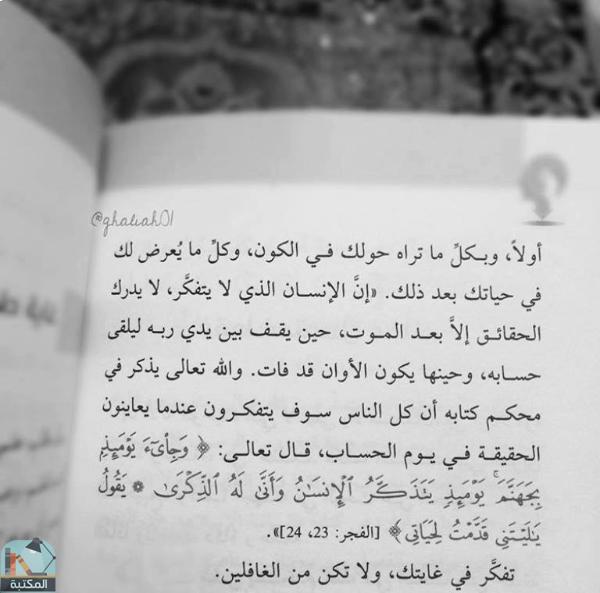 @ghaliah01
أولاً، وبكلِّ ما تراه حولك في الكون، وكلِّ ما يُعرض لك
في حياتك بعد ذلك. «إنَّ الإنسان الذي لا يتفكَّر، لا يدرك
الحقائق إلاَّ بعد الموت، حين يقف بين يدي ربه ليلقى
حسابه، وحينها يكون الأوان قد فات. والله تعالى يذكر في
محكم كتابه أن كل الناس سوف يتفكرون عندما يعاينون
الحقيقة في يوم الحساب، قال تعالى: ﴿ وَجِاْىٓءَ يَوْمَئِذٍۭ
بِجَهَنَّمَ ۚ يَوْمَئِذٍ يَتَذَكَّرُ ٱلْإِنسَٰنُ وَأَنَّىٰ لَهُ ٱلذِّكْرَىٰ * يَقُولُ
يَٰلَيْتَنِى قَدَّمْتُ لِحَيَاتِى ﴾ [الفجر: 23، 24]».
تفكَّر في غايتك، ولا تكن من الغافلين.
المكتبة